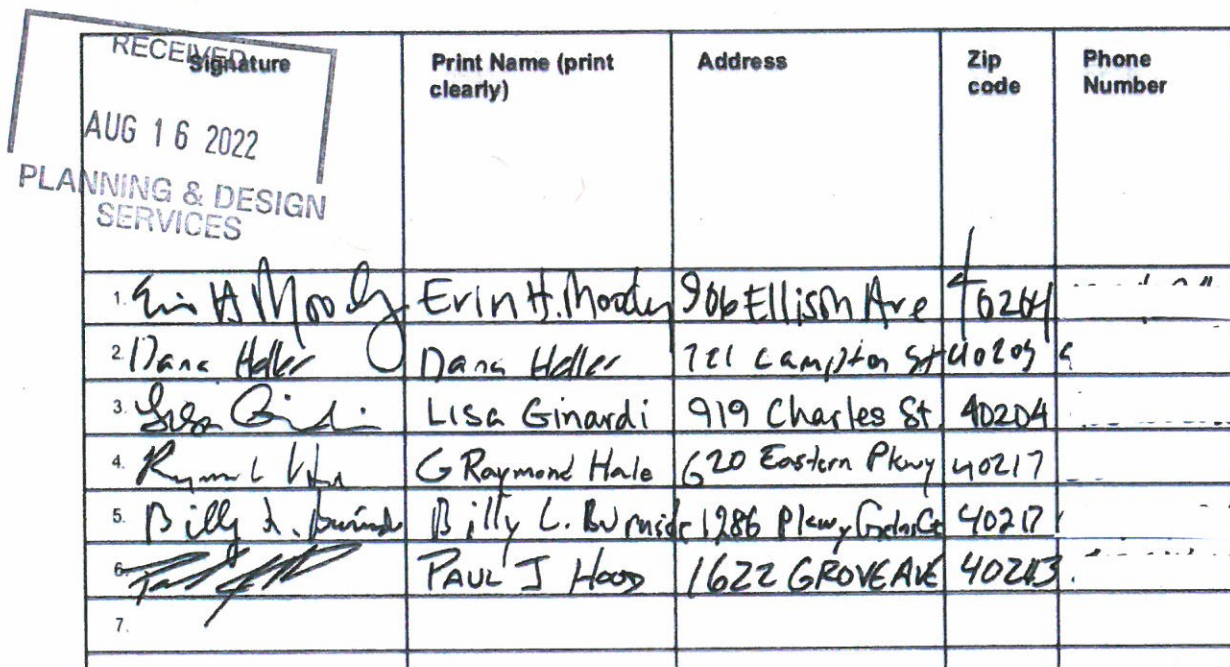 RECEIVED
AUG 16 2022
PLANNING & DESIGN
SERVICES
Signature Print Name (print clearly) Address Zip code Phone Number
1. Erin H Moody Erin H. Moody 906 Ellison Ave 40204
2. Dana Heller Dana Heller 721 Lampton St 40203
3. Lisa Ginardi Lisa Ginardi 919 Charles St. 40204
4. G Raymond Hale 620 Eastern Pkwy 40217
5. Billy L. Burnside Billy L. Burnside 1286 Pkwy Gdns Ct 40217
6. PAUL J HOOD 1622 GROVE AVE 40213
7.